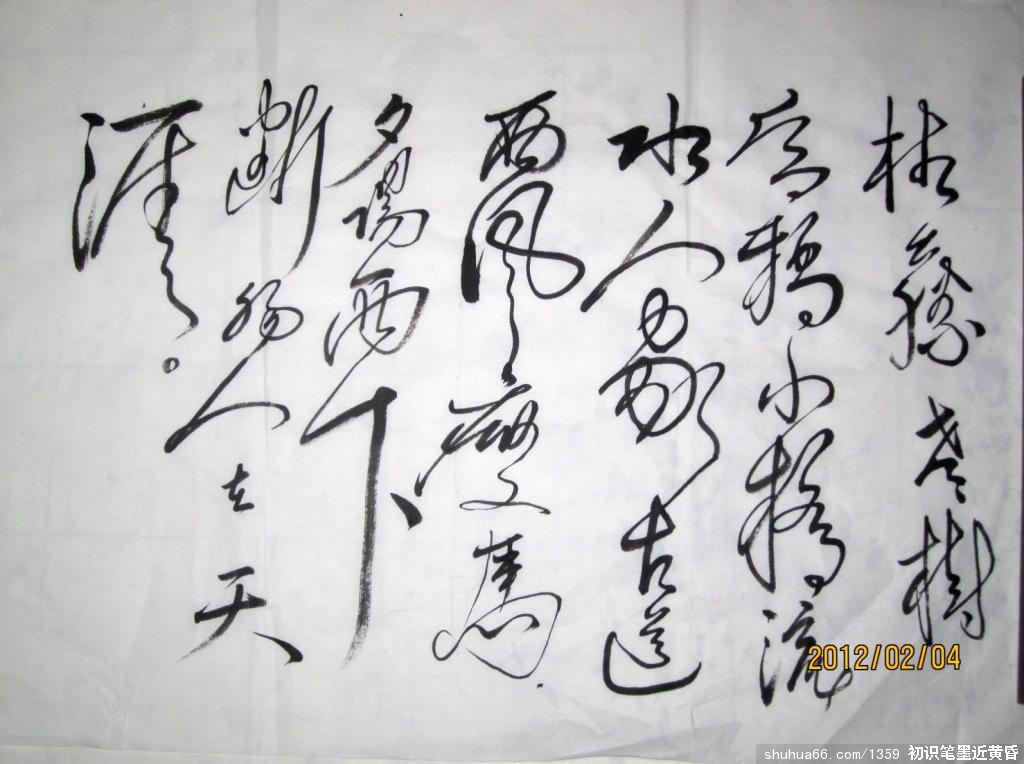 枯藤老樹
昏鴉小橋流
水人家古道
西風瘦馬
夕陽西下
断腸人在天
涯。
2012/02/04
shuhua66.com/1359 初识笔墨近黄昏